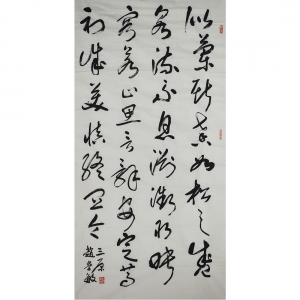 似蘭斯馨如松之盛
川流不息淵澄取映
容若止思言辭安定篤
初誠美慎終宜令
三原
趙敏